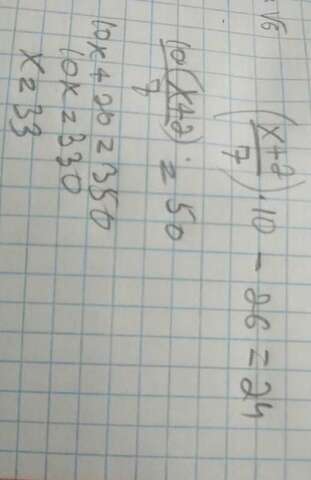 = √6
(x+2/7) · 10 − 26 = 24
10(x+2)/7 = 50
10x + 20 = 350
10x = 330
x = 33